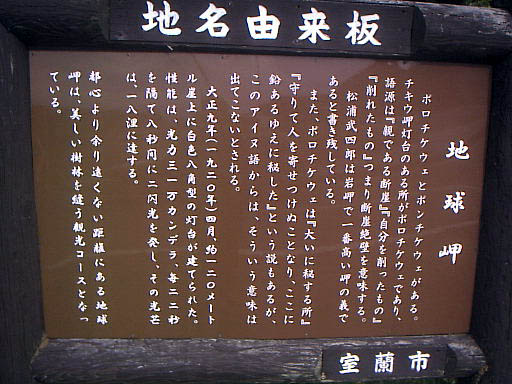 地名由来板
地球岬
ポロチケウェとポンチケウェがある。
チキウ岬灯台のある所がポロチケウェであり、
語源は『親である断崖』『自分を削ったもの』
『削れたもの』つまり断崖絶壁を意味する。
松浦武四郎は岩岬で一番高い岬の義で
あると書き残している。
また、ポロチケウェは『大いに秘する所』
『守りて人を寄せつけぬことなり、ここに
鉛あるゆえに秘した』という説もあるが、
このアイヌ語からは、そういう意味は
出てこないとされる。
大正九年(一九二〇年)四月、約一二〇メート
ル崖上に白色八角型の灯台が建てられた。
性能は、光力三一万カンデラ、毎二二秒
を隔て八秒間に二閃光を発し、その光芒
は一八浬に達する。
都心より余り遠くない距離にある地球
岬は、美しい樹林を縫う観光コースとなっ
ている。
室蘭市